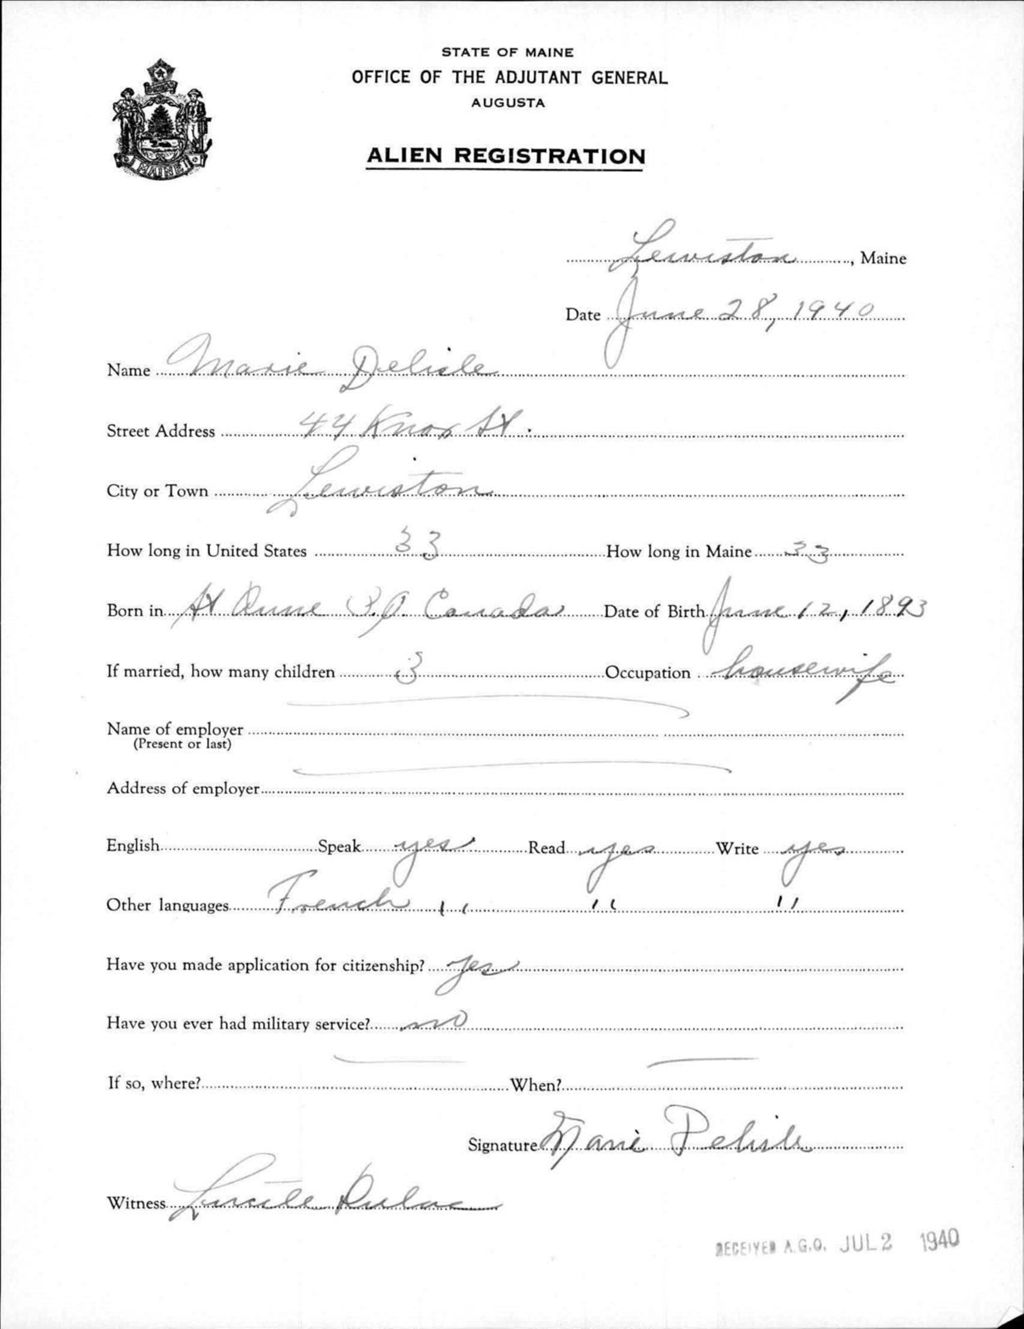 STATE OF MAINE
OFFICE OF THE ADJUTANT GENERAL
AUGUSTA
ALIEN REGISTRATION
MAINE
Lewiston, Maine
Date June 28, 1940
Name Marie Delisle
Street Address 44 Knox St.
City or Town Lewiston
How long in United States 33 How long in Maine 33
Born in St Anne P.Q. Canada Date of Birth June 12, 1893
If married, how many children 3 Occupation housewife
Name of employer
(Present or last)
Address of employer
English Speak yes Read yes Write yes
Other languages French " " "
Have you made application for citizenship? Yes
Have you ever had military service? no
If so, where? When?
Signature Marie Delisle
Witness Lucille Dulac
RECEIVED A.G.O. JUL 2 1940